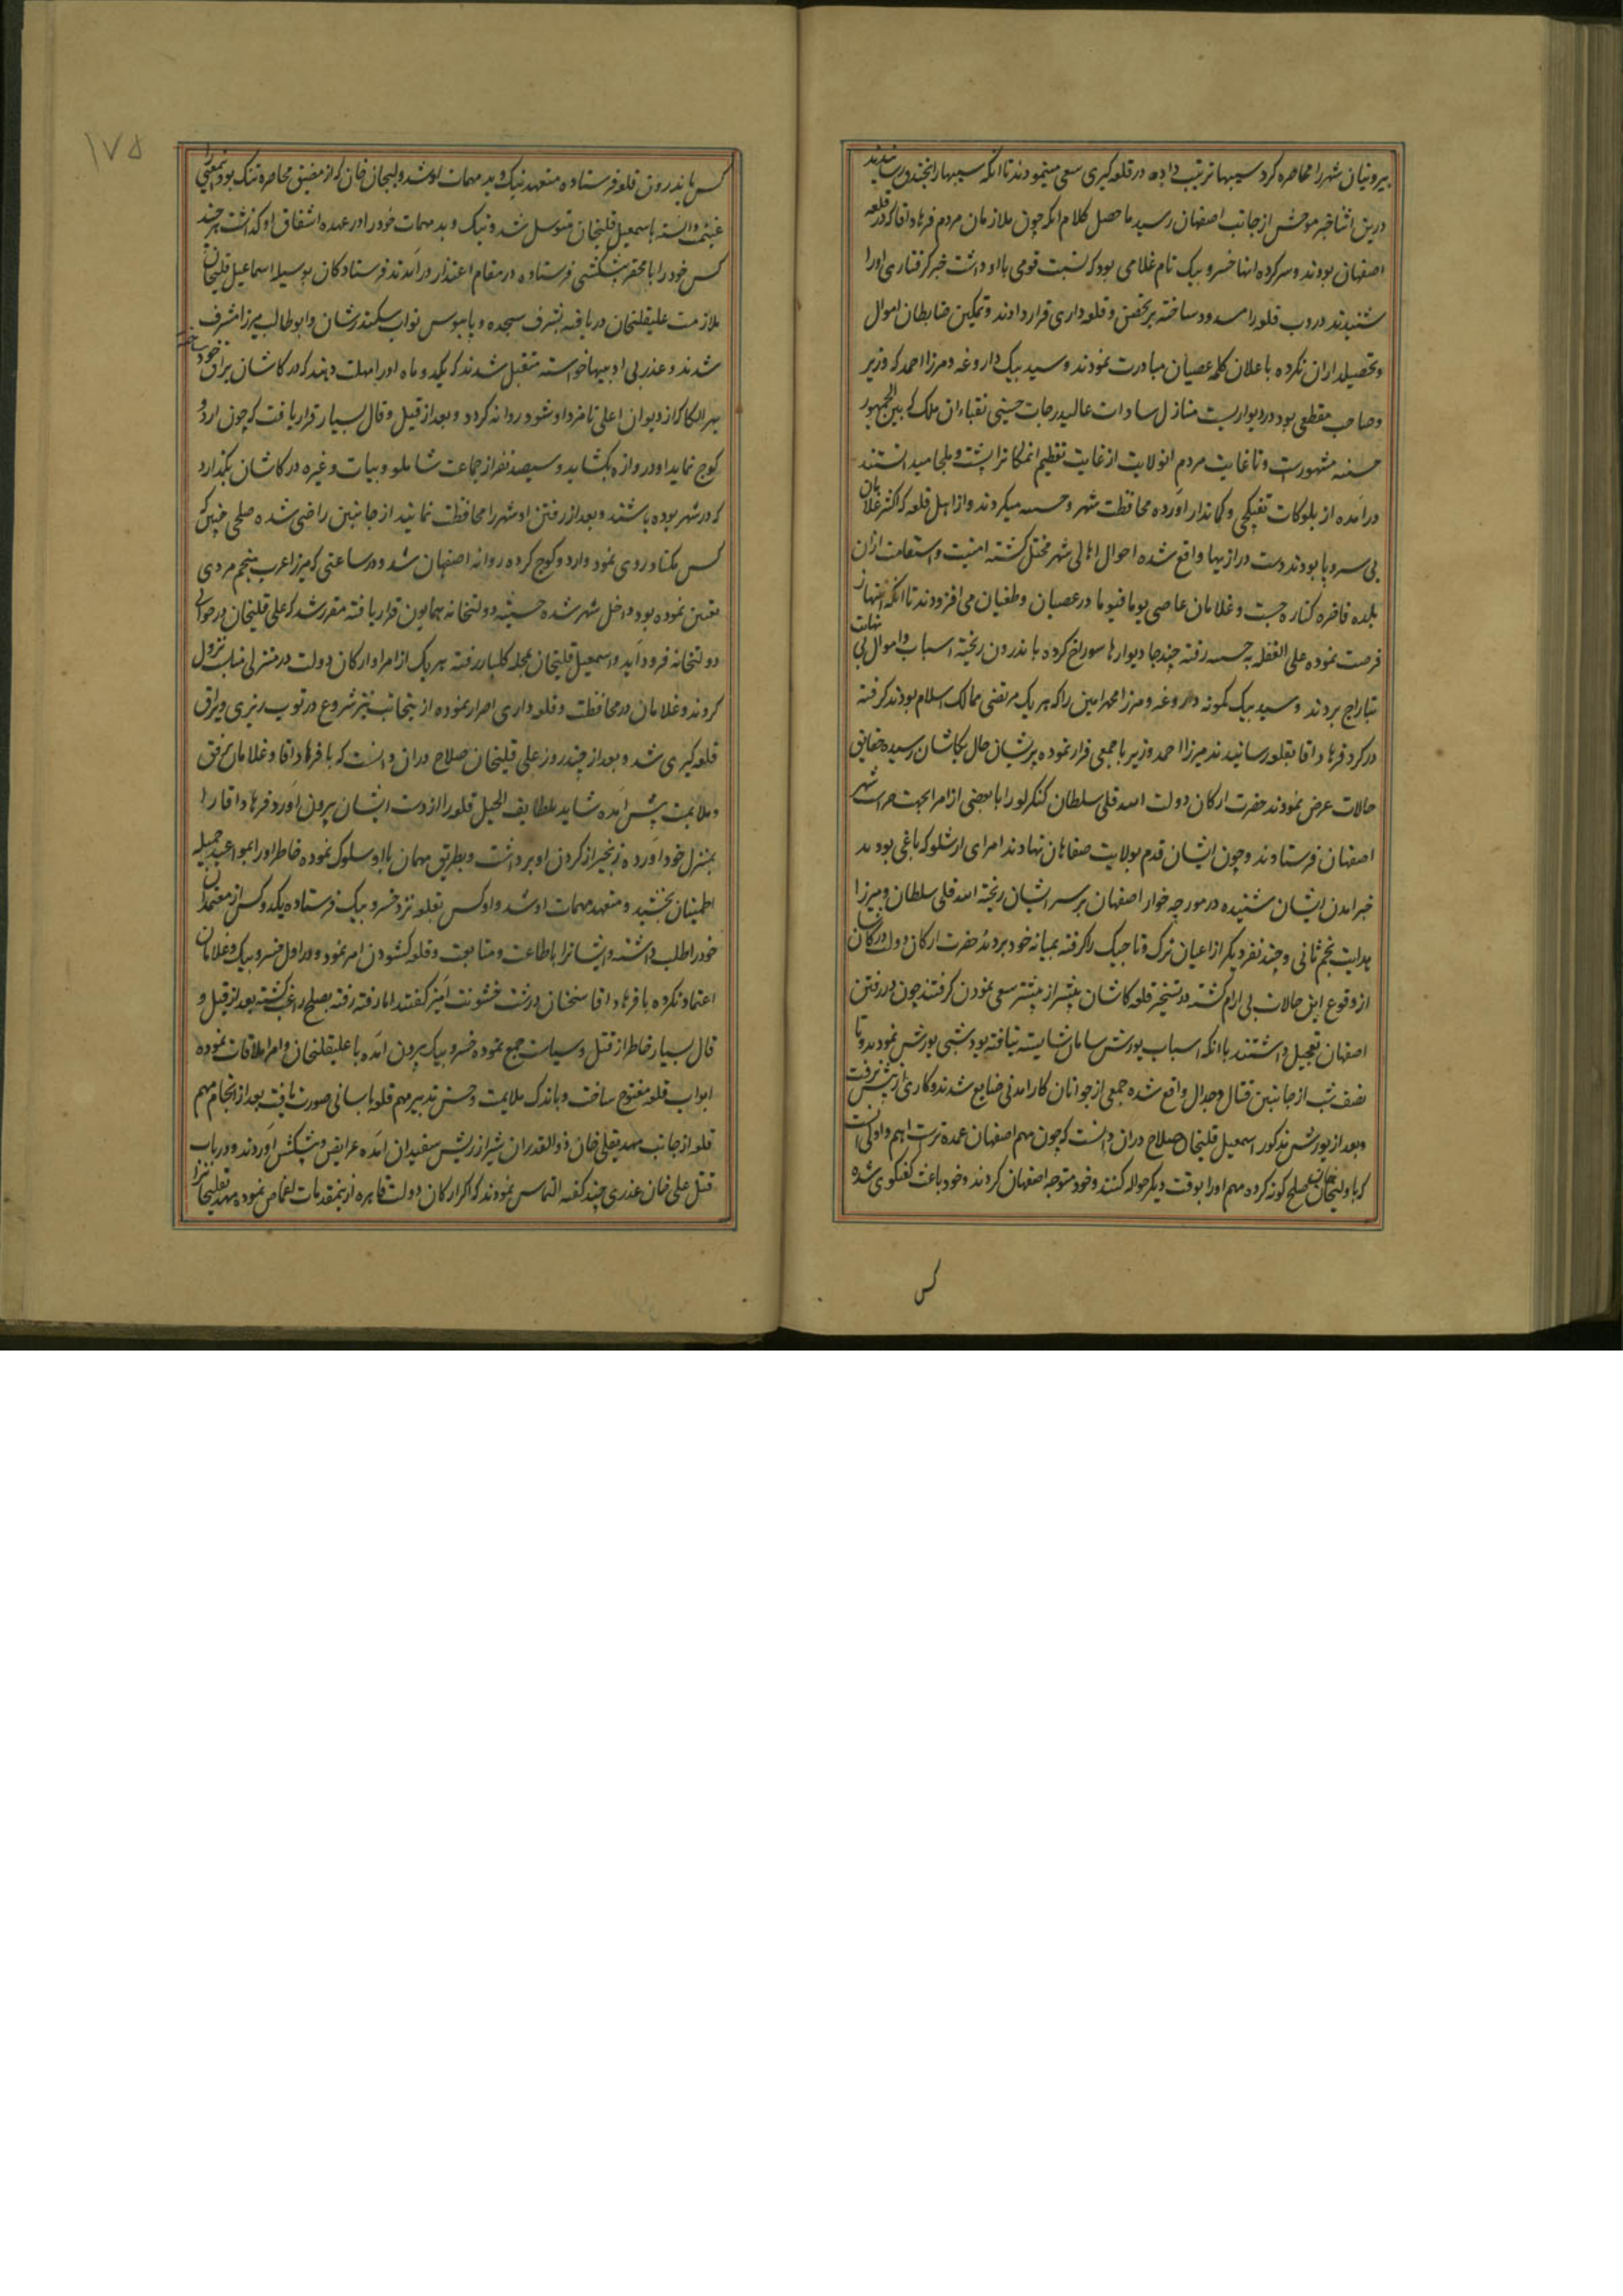 بیرونیان شهر را محاصره کرد سیبها ترتیب داده در قلعه کیری سعی مینمودند تا انکه سیبها را بخندق رسانیدند
درین اثنا خبر موحش از جانب اصفهان رسید ما حصل کلام انکه چون ملازمان مردم فرهاد اقا که در قلعه
اصفهان بودند و سرکرده انها خسرو بیک نام غلامی بود که نسبت قومی با او داشت خبر کرفتاری او را
شنیدند دروب قلعه را مسدود ساخته بر تحصن و قلعه داری قرار دادند و تمکین ضابطان اموال
و تحصیلداران نکرده باعلان کلمه عصیان مبادرت نمودند و سید بیک داروغه و مرزا احمد که وزیر
و صاحب مقطعی بود در دیواریست منازل سادات عالیدرجات حسینی نقباء ان ملک که بین الجمهور
حسنه مشهورست و تا غایت مردم انولایت از غایت تعظیم انمکانرا پشت و ملجا میدانستند
درامده از بلوکات تفنکچی و کماندار اورده محافظت شهر و حسنه میکردند و از اهل قلعه که اکثر غلامان
بی سر و پا بودند دست درازیها واقع شده احوال اهالی شهر مختل کشته امنیت و استقامت ازان
بلده فاخره کناره جست و غلامان عاصی یوما فیوما در عصیان و طغیان می افزودند تا انکه انتهاز
فرصت نموده علی الغفله به حسنه رفته چند جا دیوارها سوراخ کرده باندرون ریخته اسباب و اموال بی نهایت
بتاراج بردند و سید بیک کمونه داروغه و مرزا محمد امین را که هر یک مرتضی ممالک اسلام بودند کرفته
در کرد فرهاد اقا بقلعه رسانیدند میرزا احمد وزیر با جمعی فرار نموده پریشان حال بکاشان رسیده حقایق
حالات عرض نمودند حضرت ارکان دولت اسد قلی سلطان کنکرلو را با بعضی از امرا بجهت حراست شهر
اصفهان فرستادند و چون ایشان قدم بولایت صفاهان نهادند امرای ارشلو که باغی بودند
خبر امدن ایشان شنیده در مورچه خوار اصفهان بر سر ایشان ریخته اسد قلی سلطان و میرزا
هدایت نجم ثانی و چند نفر دیکر از اعیان ترک و تاجیک را کرفته بمیانه خود بردند حضرت ارکان دولت
از وقوع این حالات بی ارام کشته در تسخیر قلعه کاشان بیشتر از پیشتر سعی نمودن کرفتند چون در رفتن
اصفهان تعجیل داشتند با انکه اسباب یورش سامان شایسته نیافته بود شبی یورش نمودند و تا
نصف شب از جانبین قتال و جدال واقع شده جمعی از جوانان کارامدنی ضایع شدند و کاری از پیش نرفت
و بعد از یورش مذکور اسمعیل قلیخان صلاح دران دانست که چون مهم اصفهان عمده ترست اهم و اولی انست
که با ولیجان خان صلح کونه کرده مهم او را بوقت دیکر حواله کنند و خود متوجه اصفهان کردند و خود باعث کفتکوی شده
کس
۱۷۵
کس باندرون قلعه فرستاده متعهد نیک و بد مهمات او شد ولیجان خان که از مضیق محاصره تنک بود اینمعنی را
غنیمت دانسته باسمعیل قلیخان متوسل شده نیک و بد مهمات خود را در عهده اشفاق او کذاشت چند
کس خود را با محقر پیشکشی فرستاده در مقام اعتذار درامدند فرستادکان بوسیله اسماعیل قلیخان
ملازمت علیقلیخان دریافته بشرف سجده و پابوس نواب سکندرشان و ابوطالب میرزا مشرف
شدند و عذر بی ادبیها خواسته متقبل شدند که یکدو ماه او را مهلت دهند که در کاشان یراق خود ساخته
بهر الکا که از دیوان اعلی نامزد او شود روانه کردد و بعد از قیل و قال بسیار قرار یافت که چون اردو
کوچ نماید او دروازه بکشاید و سیصد نفر از جماعت شاملو و بیات و غیره در کاشان بکذارد
که در شهر بوده باشند و بعد از رفتن او شهر را محافظت نمایند از جانبین راضی شده صلحی چنین که
کس مکناد روی نمود و اردو کوچ کرده روانه اصفهان شد و در ساعتی که میرزا عرب منجم مردی
تعیین نموده بود داخل شهر شده دولتخانه همایون قرار یافته مقرر شد که علی قلیخان در حوالی
دولتخانه فرود اید و اسمعیل قلیخان بمحله کلبار رفته هر یک از امرا و ارکان دولت در منزلی مناسب نزول
کردند و غلامان در محافظت و قلعه داری اصرار نموده از ینجانب نیز شروع در توپ ریزی و یراق
قلعه کیری شد و بعد از چند روز علی قلیخان صلاح دران دانست که با فرهاد اقا و غلامان برفق
و ملایمت پیش امده شاید بلطایف الحیل قلعه را از دست ایشان بیرون اورد فرهاد اقا را
بمنزل خود اورده زنجیر از کردن او برداشت و بطریق مهمان با او سلوک نموده خاطر او را بمواعید جمیله
اطمینان بخشید و متعهد مهمات او شد و او کس بقلعه نزد خسرو بیک فرستاده یکدو کس از معتمدان
خود را طلب داشته و ایشانرا باطاعت و متابعت و قلعه کشودن امر نمود و در اول خسرو بیک و غلامان
اعتماد نکرده با فرهاد اقا سخنان درشت خشونت امیز کفتند اما رفته رفته بصلح راغب کشته بعد از قیل و
قال بسیار خاطر از قتل و سیاست جمع نموده خسرو بیک بیرون امده با علیقلیخان و امرا ملاقات نموده
ابواب قلعه مفتوح ساخت و باندک ملایمت و حسن تدبیر مهم قلعه باسانی صورت یافت بعد از انجام مهم
قلعه از جانب مهدیقلی خان ذوالقدران شیراز ریش سفیدان امده عرایض و پیشکش اوردند و در باب
قتل علی خان عذری چند کفته التماس نمودند که اکر ارکان دولت قاهره ازینمقدمات اغماض نموده مهدیقلیخانرا